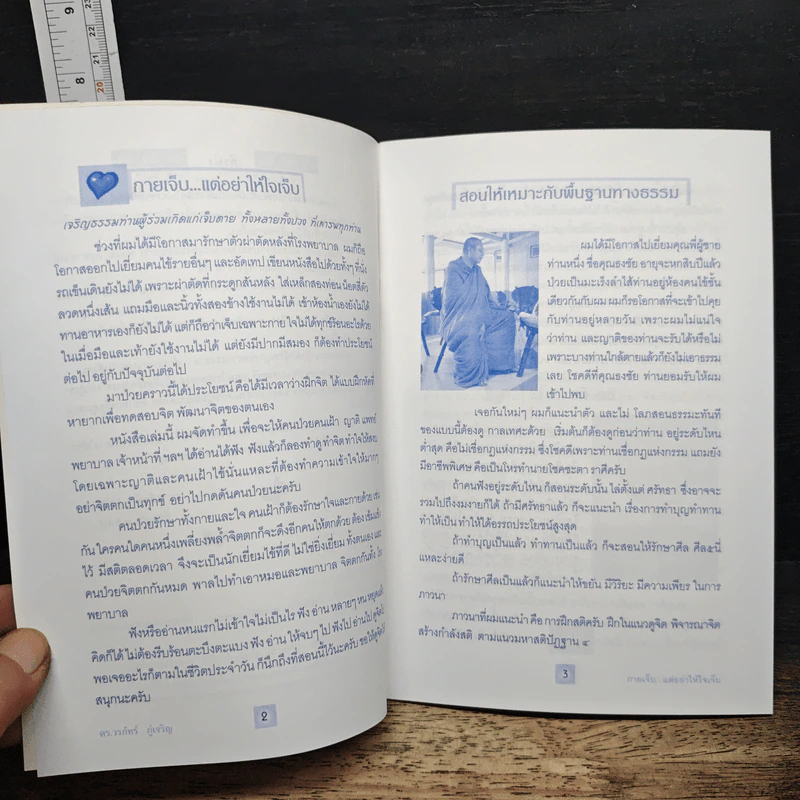 9
8
23
22
21
20
กายเจ็บ...แต่อย่าให้ใจเจ็บ
เจริญธรรมท่านผู้ร่วมเกิดแก่เจ็บตาย ทั้งหลายทั้งปวง ที่เคารพทุกท่าน
ช่วงที่ผมได้มีโอกาสมารักษาตัวผ่าตัดหลังที่โรงพยาบาล ผมก็ถือ
โอกาสออกไปเยี่ยมคนไข้รายอื่นๆ และอัดเทป เขียนหนังสือไปด้วยทั้งๆ ที่นั่ง
รถเข็นเดินยังไม่ได้ เพราะผ่าตัดที่กระดูกสันหลัง ใส่เหล็กสองท่อน น็อตสี่ตัว
ลวดหนึ่งเส้น แถมมือและนิ้วทั้งสองข้างใช้งานไม่ได้ เข้าห้องน้ำเองยังไม่ได้
ทานอาหารเองก็ยังไม่ได้ แต่ก็ถือว่าเจ็บเฉพาะกาย ใจไม่ได้ทุกข์ร้อนอะไรด้วย
ในเมื่อมือและเท้ายังใช้งานไม่ได้ แต่ยังมีปากมีสมอง ก็ต้องทำประโยชน์
ต่อไป อยู่กับปัจจุบันต่อไป
มาป่วยคราวนี้ได้ประโยชน์ คือได้มีเวลาว่างฝึกจิต ได้แบบฝึกหัดที่
หายากเพื่อทดสอบจิต พัฒนาจิตของตนเอง
หนังสือเล่มนี้ ผมจัดทำขึ้น เพื่อจะให้คนป่วยคนเฝ้า ญาติ แพทย์
พยาบาล เจ้าหน้าที่ ฯลฯ ได้อ่านได้ฟัง ฟังแล้วก็ลองทำดู ทำจิตทำใจให้สงบ
โดยเฉพาะญาติและคนเฝ้าไข้นั่นแหละที่ต้องทำความเข้าใจให้มากๆ
อย่าจิตตกเป็นทุกข์ อย่าไปกดดันคนป่วยนะครับ
คนป่วยรักษาทั้งกายและใจ คนเฝ้าก็ต้องรักษาใจและกายด้วย เช่น
กัน ใครคนใดคนหนึ่งเพลี่ยงพล้ำจิตตกก็จะดึงอีกคนให้ตกด้วย ต้อง เข้มแข็ง
ไว้ มีสติตลอดเวลา จึงจะเป็นนักเยี่ยมไข้ที่ดี ไม่ใช่ยิ่งเยี่ยม ทั้งตนเอง และ
คนป่วยจิตตกกันหมด พาลไปทำเอาหมอและพยาบาล จิตตกกันทั้ง โรง
พยาบาล
ฟังหรืออ่านหนแรกไม่เข้าใจไม่เป็นไร ฟัง อ่าน หลายๆ หน หยุดแล้ว
คิดก็ได้ ไม่ต้องรีบร้อนตะบึงตะแบง ฟัง อ่าน ให้จบๆ ไป ฟังไป อ่านไป ดูจิตไป
พอเจออะไรก็ตามในชีวิตประจำวัน ก็นึกถึงที่สอนนี้ไว้นะครับ ขอให้ดูจิตได้
สนุกนะครับ
2
ดร.วรภัทร์ ภู่เจริญ
สอนให้เหมาะกับพื้นฐานทางธรรม
ผมได้มีโอกาสไปเยี่ยมคุณพี่ผู้ชาย
ท่านหนึ่ง ชื่อคุณธงชัย อายุจะหกสิบปีแล้ว
ป่วยเป็นมะเร็งลำไส้ ท่านอยู่ห้องคนไข้ชั้น
เดียวกันกับผม ผมก็รอโอกาสที่จะเข้าไปคุย
กับท่านอยู่หลายวัน เพราะผมไม่แน่ใจ
ว่าท่าน และญาติของท่านจะรับได้หรือไม่
เพราะบางท่านใกล้ตายแล้วก็ยังไม่เอาธรรม
เลย โชคดีที่คุณธงชัย ท่านยอมรับให้ผม
เข้าไปพบ
เจอกันใหม่ๆ ผมก็แนะนำตัว และไม่ โลภสอนธรรมะทันที
ของแบบนี้ต้องดู กาลเทศะด้วย เริ่มต้นก็ต้องดูก่อนว่าท่าน อยู่ระดับไหน
ต่ำสุด คือไม่เชื่อกฎแห่งกรรม ซึ่งโชคดีเพราะท่านเชื่อกฎแห่งกรรม แถมยัง
มีอาชีพพิเศษ คือเป็นโหรทำนายโชคชะตา ราศีครับ
ถ้าคนฟังอยู่ระดับไหน ก็สอนระดับนั้น ไล่ตั้งแต่ ศรัทธา ซึ่งอาจจะ
รวมไปถึงงมงายก็ได้ ถ้ามีศรัทธาแล้ว ก็จะแนะนำ เรื่องการทำบุญทำทาน
ทำให้เป็น ทำให้ได้อรรถประโยชน์สูงสุด
ถ้าทำบุญเป็นแล้ว ทำทานเป็นแล้ว ก็จะสอนให้รักษาศีล ศีล๕นี่
แหละง่ายดี
ถ้ารักษาศีลเป็นแล้วก็แนะนำให้ขยัน มีวิริยะ มีความเพียร ในการ
ภาวนา
ภาวนาที่ผมแนะนำ คือ การฝึกสติครับ ฝึกในแนวดูจิต พิจารณาจิต
สร้างกำลังสติ ตามแนวมหาสติปัฏฐาน ๔
3
กายเจ็บ : แต่อย่าให้ใจเจ็บ